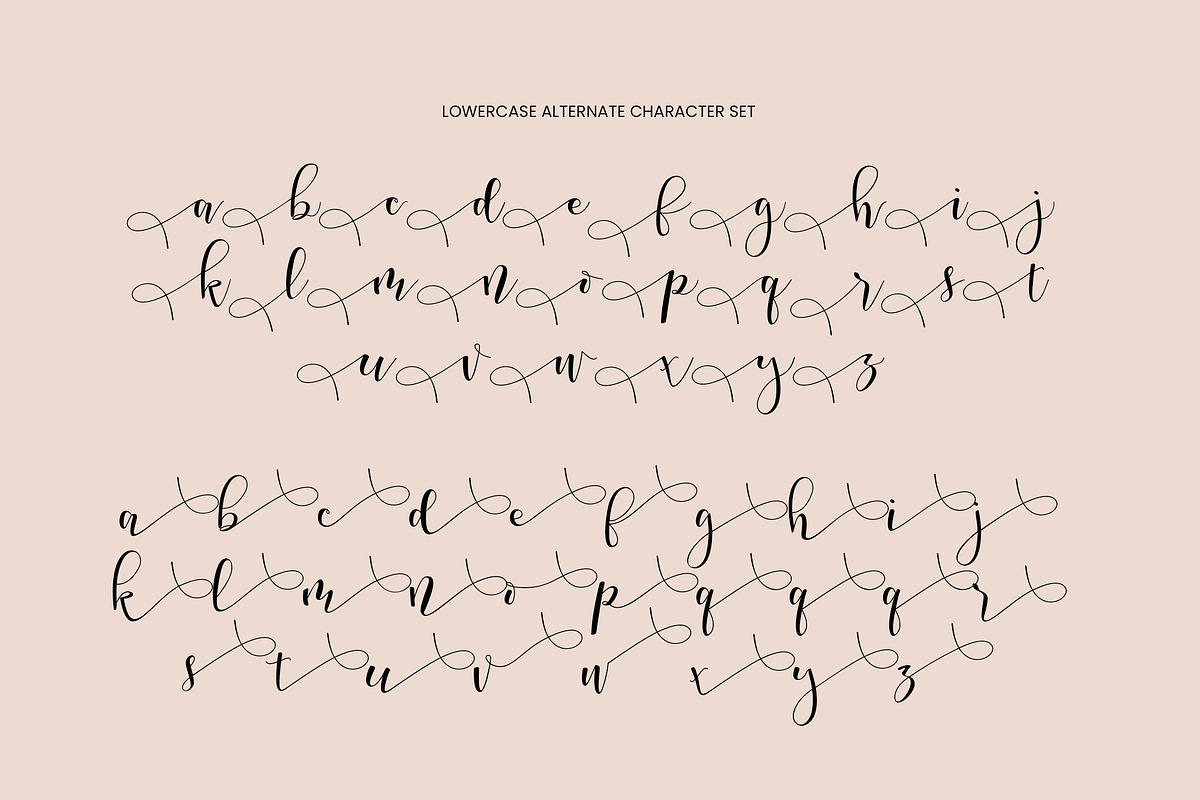 LOWERCASE ALTERNATE CHARACTER SET
a b c d e f g h i j
k l m n o p q r s t
u v w x y z
a b c d e f g h i j
k l m n o p q q q r
s t u v w x y z